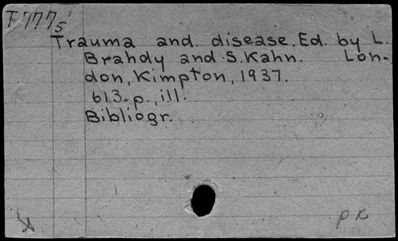 T777s
Trauma and disease. Ed. by L.
Brahdy and S. Kahn. Lon-
don, Kimpton, 1937.
613 p., ill.
Bibliogr.